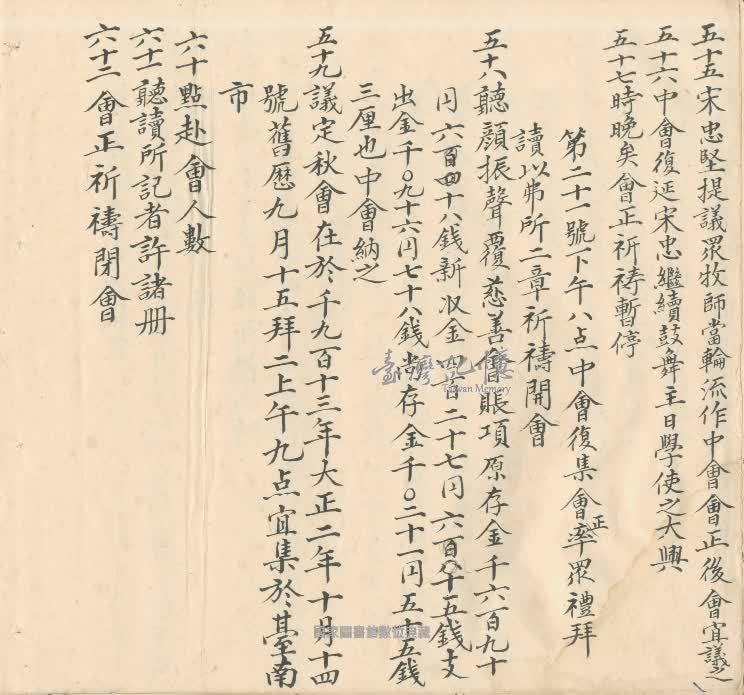 五十五宋忠堅提議眾牧師當輪流作中會會正後會宜議之
五十六中會復延宋忠繼續鼓舞主日學使之大興
五十七時晚矣會正祈祷暫停
第二十一號下午八点中會復集會正率眾禮拜
讀以弗所二章祈禱開會
五十八聽顏振聲覆慈善會賬項原存金千六百九十
円六百四十八銭新收金四百二十七円六百八十五銭支
出金千〇九十六円七十八銭尚存金千〇二十一円五十五銭
三厘也中會納之
五十九議定秋會在於千九百十三年大正二年十月十四
號舊歷九月十五拜二上午九点宜集於臺南
市
六十點赴會人數
六十一聽讀所記者許諸册
六十二會正祈禱閉會
臺灣記憶
Taiwan Memory
國家圖書館數位典藏